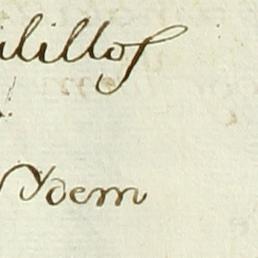 ilillos
Ydem